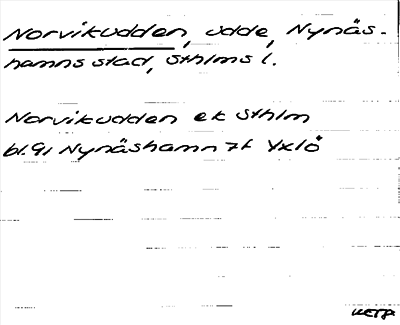 Norvikudden, udde, Nynäs-
hamns stad, Sthlms l.
Norvikudden ek Sthlm
bl. 91 Nynäshamn 7f Yxlö